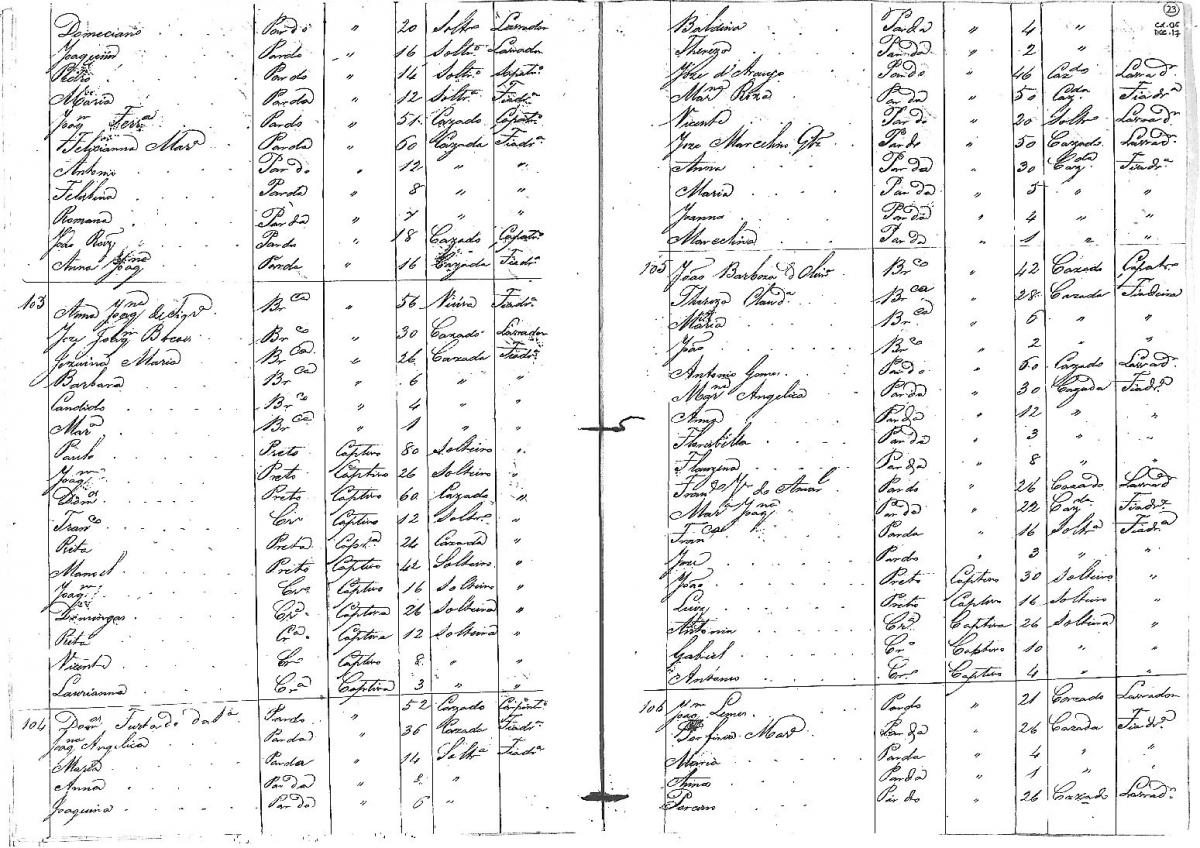 Domeciano Pardo " 20 Soltro Lavrador
Joaquim Pardo " 16 Soltro Lavrador
Pedro Pardo " 14 Soltro Sapatro
Maria Parda " 12 Soltra Fiadra
Joaqm Ferra Pardo " 51 Cazado Capatro
Felizianna Mara Parda " 60 Cazada Fiadra
Antonio Pardo " 12 " "
Felisbina Parda " 8 " "
Romana Parda " 7 " "
João Roiz Pardo " 18 Cazado Capatro
Anna Joaqna Parda " 16 Cazada Fiadra
103 Anna Joaqna de Siqra Brca " 56 Viuva Fiadra
Joze Joaqm Brco " 30 Cazado Lavrador
Jozuina Maria Brca " 26 Cazada Fiadra
Barbara Brca " 6 " "
Candido Brco " 4 " "
Mara Brca " 1 " "
Paulo Preto Captivo 80 Solteiro "
Joaqm Preto Captivo 26 Solteiro "
Domos Preto Captivo 60 Cazado "
Franco Cro Captivo 12 Soltro "
Rita Preta Capta 24 Cazada "
Manoel Preto Captivo 42 Solteiro "
Joaqm Cro Captivo 16 Solteiro "
Domingas Cra Captiva 26 Solteira "
Rita Cra Captiva 12 Solteira "
Vicente Cro Captivo 8 " "
Laurianna Cra Captiva 3 " "
104 Domos Furtado da Pardo " 52 Cazado Carpinto
Joaqna Angelica Parda " 36 Cazada Fiadra
Maria Parda " 14 Soltra Fiadra
Anna Parda " 8 "
Joaquina Parda " 6 "
23
CX.06
DOC.17
Baldina Parda " 4 "
Thereza Parda " 2 "
Joze d'Araujo Pardo " 46 Cazdo Lavradr
Mara Roza Parda " 50 Cazda Fiadra
Vicente Pardo " 20 Soltro Lavradr
Joze Marcelino Glz Pardo " 50 Cazado Lavradr
Anna Parda " 30 Cazda Fiadra
Maria Parda " 5 " "
Joanna Parda " 4 " "
Marcelina Parda " 1 " "
105 João Barboza d Olivra Brco " 42 Cazado Capatro
Thereza Claudna Brca " 28 Cazada Fiadeira
Maria Brca " 6 " "
João Brco " 2 " "
Antonio Gomes Pardo " 60 Cazado Lavradr
Mara Angelica Parda " 30 Cazada Fiadra
Anna Parda " 12 "
Parda " 3 "
Parda " 8 "
Franco do Amal Pardo " 26 Cazado Lavradr
Mara Joaqna Parda " 22 Cazda Fiadra
Franca Parda " 16 Soltra Fiadra
Joze Pardo " 3 " "
João Preto Captivo 30 Solteiro "
Luiz Preto Captivo 16 Solteiro "
Antonia Cra Captiva 26 Solteira "
Gabriel Cro Captivo 10 " "
Antonio Cro Captivo 4 " "
106 Joaqm Lemes Pardo " 21 Cazado Lavrador
Mara Parda " 26 Cazada Fiadra
Maria Parda " 4 " "
Anna Parda " 1 " "
Pardo " 26 Cazado Lavradr